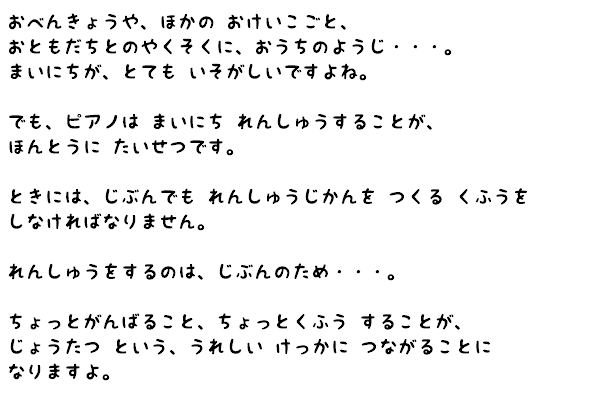 おべんきょうや、ほかの おけいこごと、
おともだちとのやくそくに、おうちのようじ・・・。
まいにちが、とても いそがしいですよね。
でも、ピアノは まいにち れんしゅうすることが、
ほんとうに たいせつです。
ときには、じぶんでも れんしゅうじかんを つくる くふうを
しなければなりません。
れんしゅうをするのは、じぶんのため・・・。
ちょっとがんばること、ちょっとくふう することが、
じょうたつ という、うれしい けっかに つながることに
なりますよ。